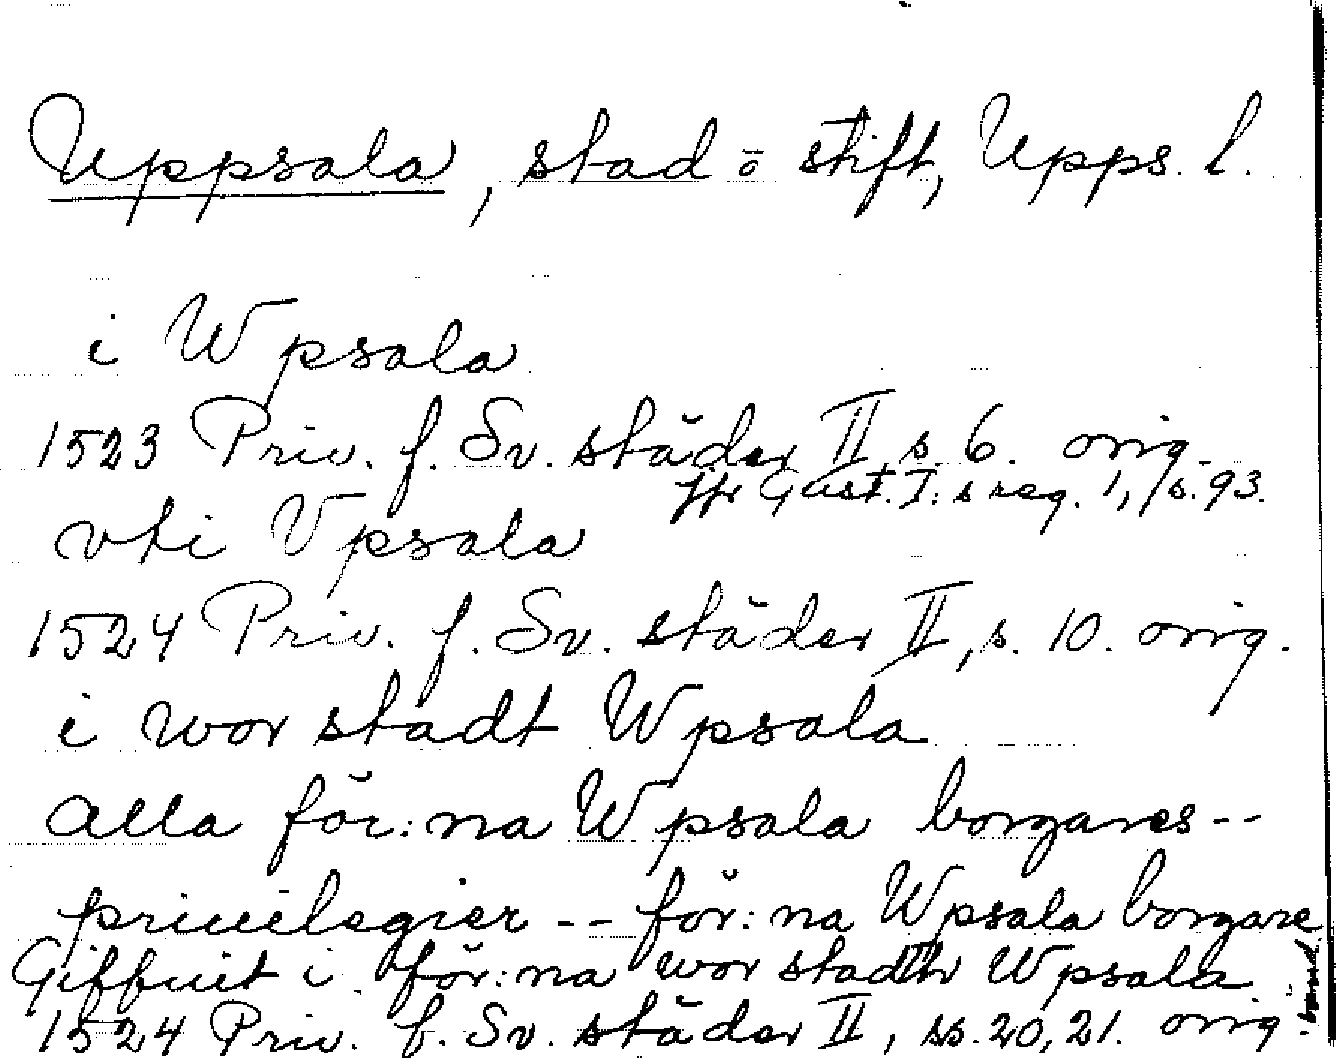 Uppsala, stad o stift, Upps. l.
i Wpsala
1523 Priv. f. Sv. städer II s. 6. orig.
jfr Gust. I:s reg. 1, s. 93.
vti Vpsala
1524 Priv. f. Sv. städer II, s. 10. orig.
i wor stadt Wpsala
alla för:na Wpsala borgares --
priuilegier -- för:na Wpsala borgare
Giffuit i för:na wor stadth Wpsala
1524 Priv. f. Sv. städer II, ss. 20, 21. orig